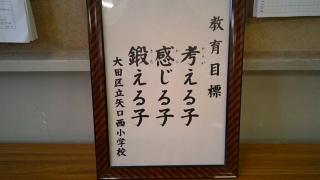 教育目標
考える子
感じる子
鍛える子
大田区立矢口西小学校